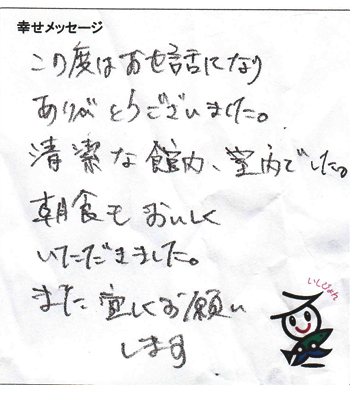 幸せメッセージ
この度はお世話になり
ありがとうございました。
清潔な館内、室内でした。
朝食もおいしく
いただきました。
また宜しくお願い
します